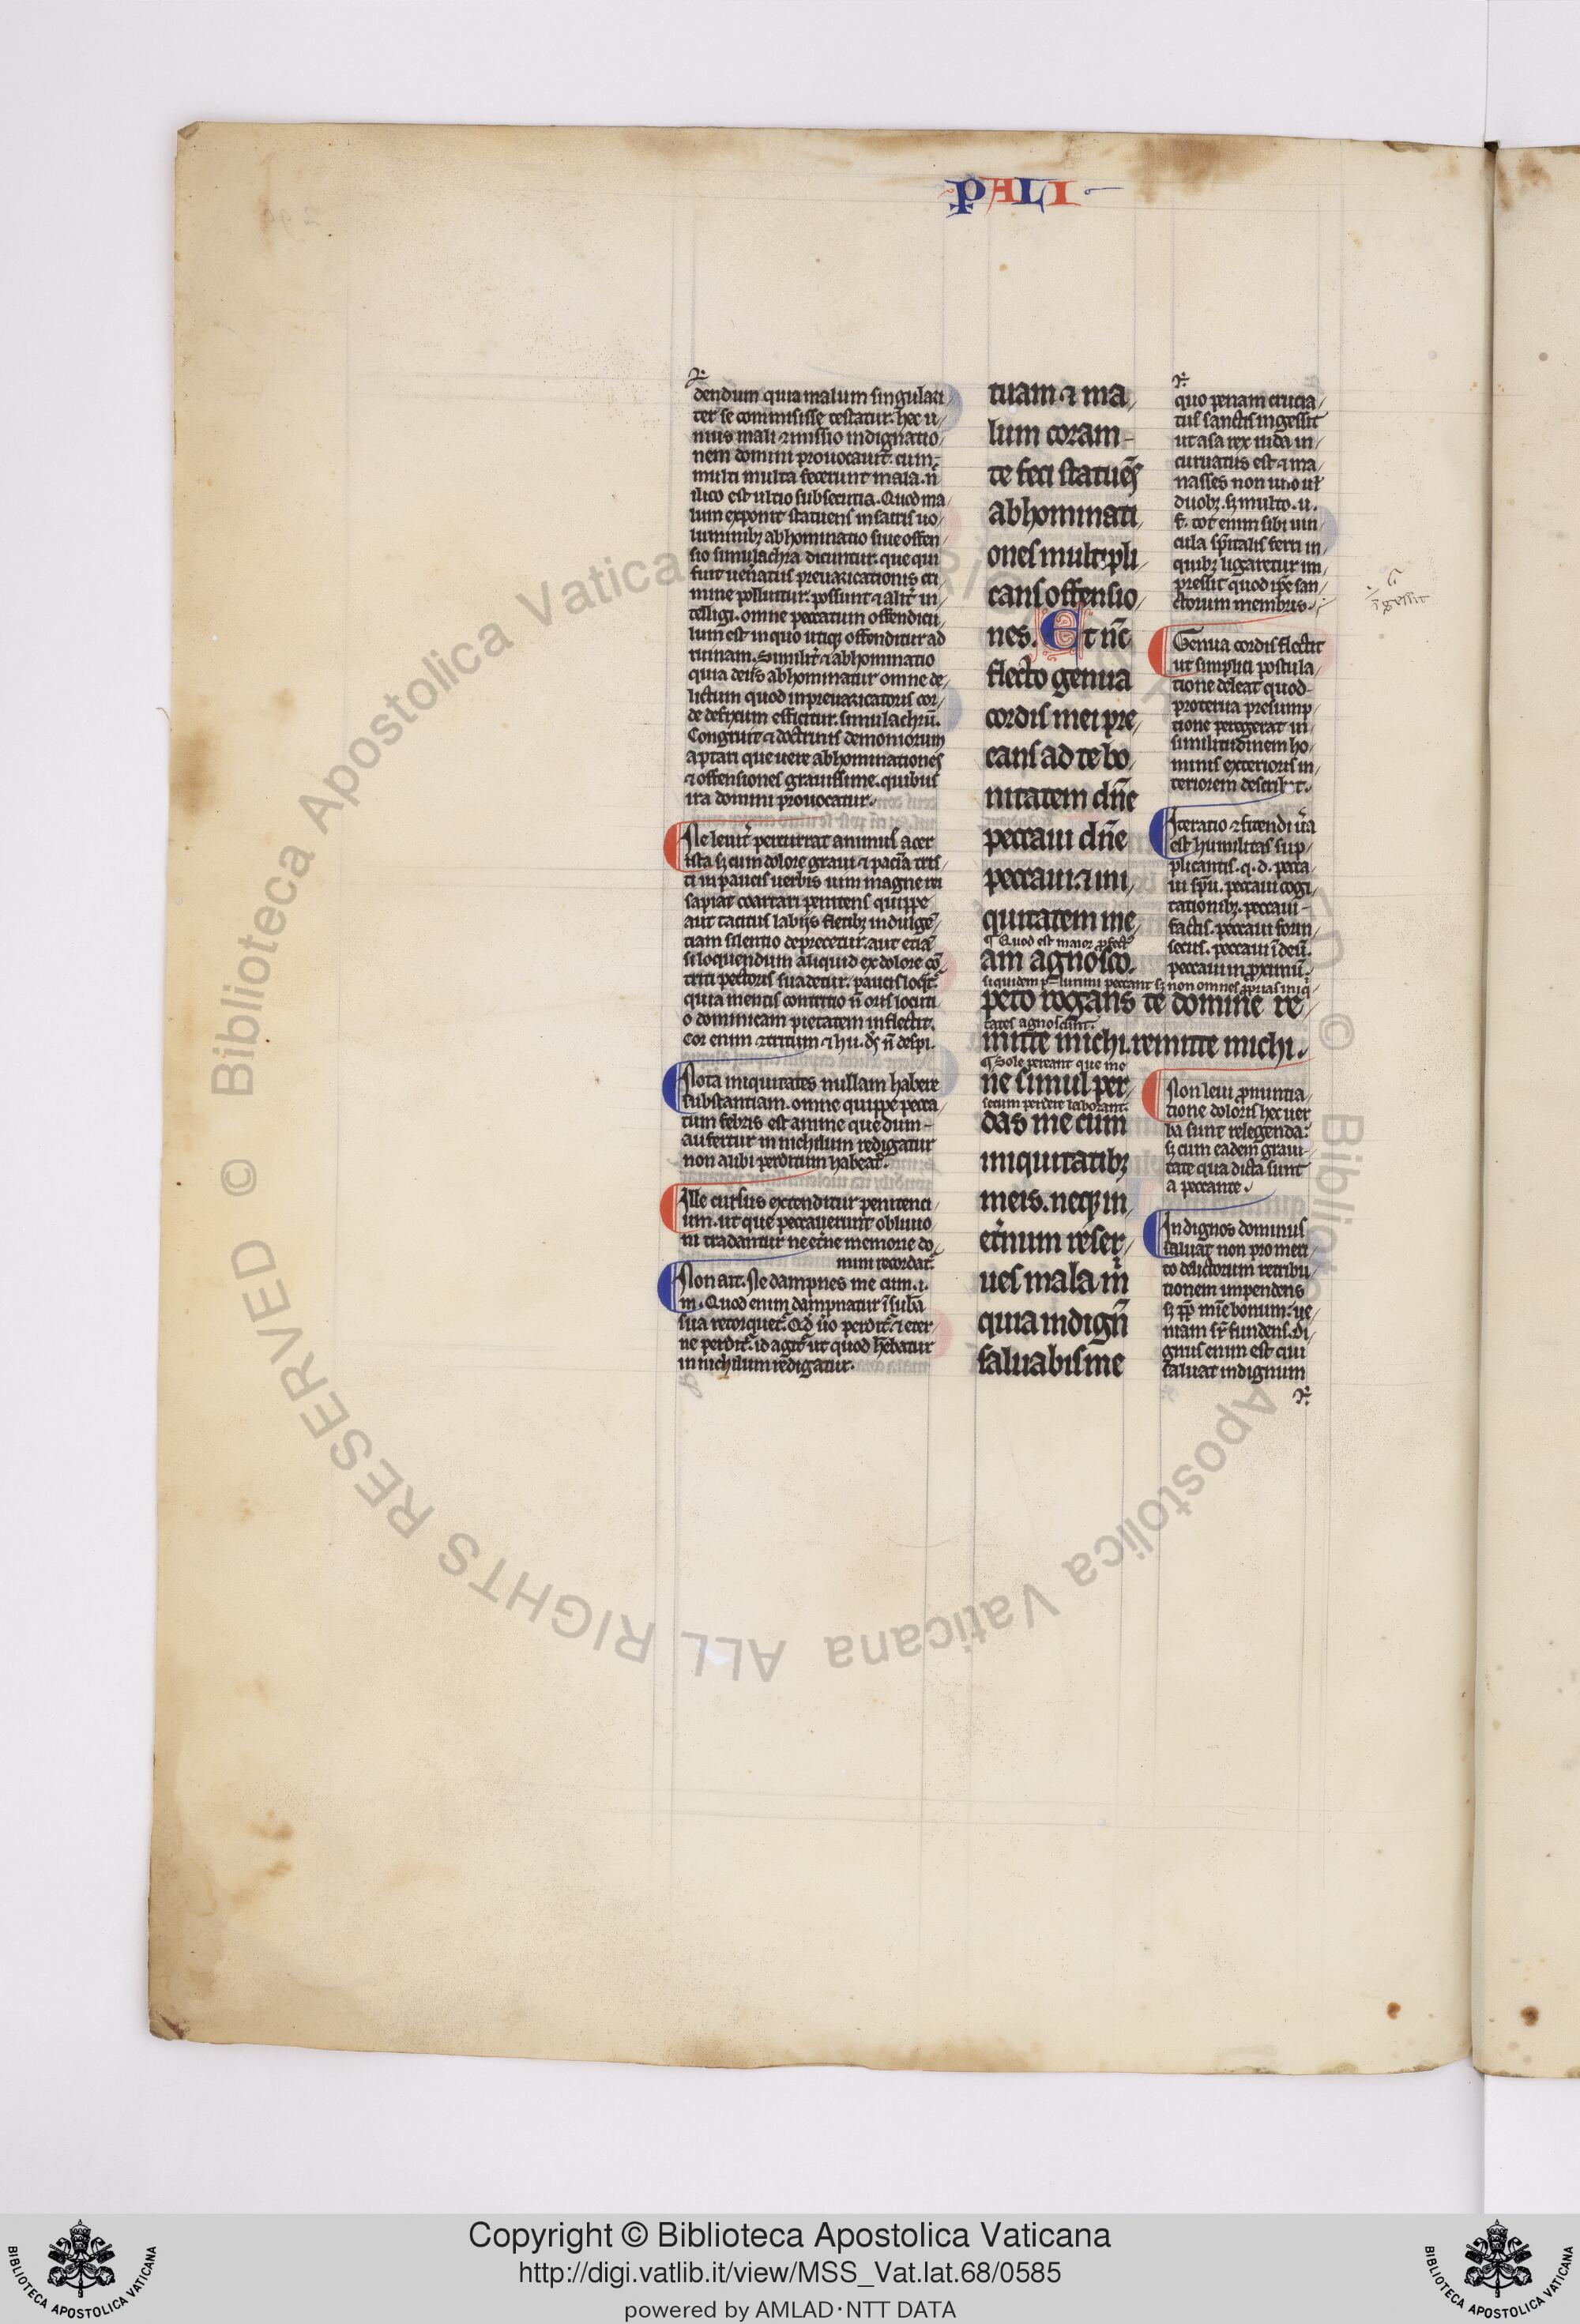 PALI
dendum quia malum singulari
ter se commisisse testatur. hec u
nius mali ꝯmissio indignatio
nem domini prouocauit. cum
multi multa fecerunt mala. n̄
ilico est ultio subsecuta. Quod ma
lum exponit statuens in sacris uo
luminibꝫ abhominatio siue offen
sio simulachra dicuntur. que qui
fuit ueneratus preuaricationis cri
mine polluitur. possunt ⁊ alit̄ in
telligi. omne peccatum offendicu
lum est in quo utiqꝫ offenditur ad
ruinam. Similit̄ ⁊ abhominatio
quia deus abhominatur omne de
lictum quod in preuaricatoris cor
de defixum efficitur. simulachrū.
Congruit ⁊ doctrinis demoniorum
aptari que uere abhominationes
⁊ offensiones grauissime. quibus
ira domini prouocatur.
Ne leuit̄ percurrat animus acer
ista sꝫ cum dolore graui ⁊
ti in paucis uerbis uim magne rei
sapiat coartari penitens quippe
aut tacitus labijs fletibꝫ indulgē
tiam silentio deprecetur. aut etiā
si loquendum aliquid ex dolore cō
triti pectoris suadetur. paucis loqr̄.
quia mentis contritio n̄ oris locuti
o dominicam pietatem inflectit.
Cor enim ꝯtritum ⁊ hu. ds̄ n̄ despi.
Nota iniquitates nullam habere
substantiam. omne quippe pecca
tum febris est anime que dum
aufertur in nichilum redigatur
non alibi perditum habeat̄.
Ille cursus extenditur penitenci
um. ut que peccauerunt obliuio
ni tradantur ne et̄ne memorie do
mini recordat̄.
Non ait. Ne dampnes me cum. i.
m. Quod enim dampnatur ī sub̄a
sua retorquet̄. Qd̄ ūo perdit̄ ⁊ eter
ne perdit̄. id agit̄ ut quod h̄ebatur
in nichilum redigatur.
tuam ⁊ ma
lum coram
te feci statuēs
abhominati
ones multipli
cans offensio
nes. Et nc̄
flecto genua
cordis mei pre
cans ad te bo
nitatem dn̄e
peccaui dn̄e
peccaui. ⁊ ini
quitatem me
¶ Quod est maior
am agnosco.
siquidem plurimi peccant sꝫ non omnes ꝓprias iniq̄
peto rogans te domine re
tates agnoscunt.
mitte michi. remitte michi.
¶ Sole pereant que me
ne simul per
secum perdere laborant.
das me cum
iniquitatibꝫ
meis. neqꝫ in
et̄num reser
ues mala m̄
quia indign̄
saluabis me
quo penam crucia
tus sanctis ingessit
ut asa rex iuda in
curuatus est ⁊ ma
nasses non uno ul̄
duobꝫ. sꝫ multo. u.
f. tot enim sibi uin
cula sp̄italis ferri in
quibꝫ ligaretur im
pressit quod ip̄e san
ctorum membris.
 īgessit
Genua cordis flectit
ut simplici postula
tione deleat quod
proterua presump
tione peregerat in
similitudinem ho
minis exterioris in
teriorem describit.
Iteratio ꝯfitendi ūa
est humilitas sup
plicantis. q. d. pecca
ui sp̄u. peccaui cogi
tationibꝫ. peccaui
factis. peccaui forin
secus. peccaui ī deū.
peccaui in proximū.
Non leui ꝓnuntia
tione doloris hec uer
ba sunt relegenda.
sꝫ cum eadem graui
tate qua dicta sunt
a peccante.
Indignos dominus
saluat non pro meri
to delictorum retribu
tionem impendens
sꝫ ꝓp̄ mīe bonum. ue
niam sr̄ fundens. Di
gnus enim est cui
saluat indignum
Copyright © Biblioteca Apostolica Vaticana
http://digi.vatlib.it/view/MSS_Vat.lat.68/0585
powered by AMLAD·NTT DATA
BIBLIOTECA APOSTOLICA VATICANA
BIBLIOTECA APOSTOLICA VATICANA
© Biblioteca Apostolica Vaticana ALL RIGHTS RESERVED